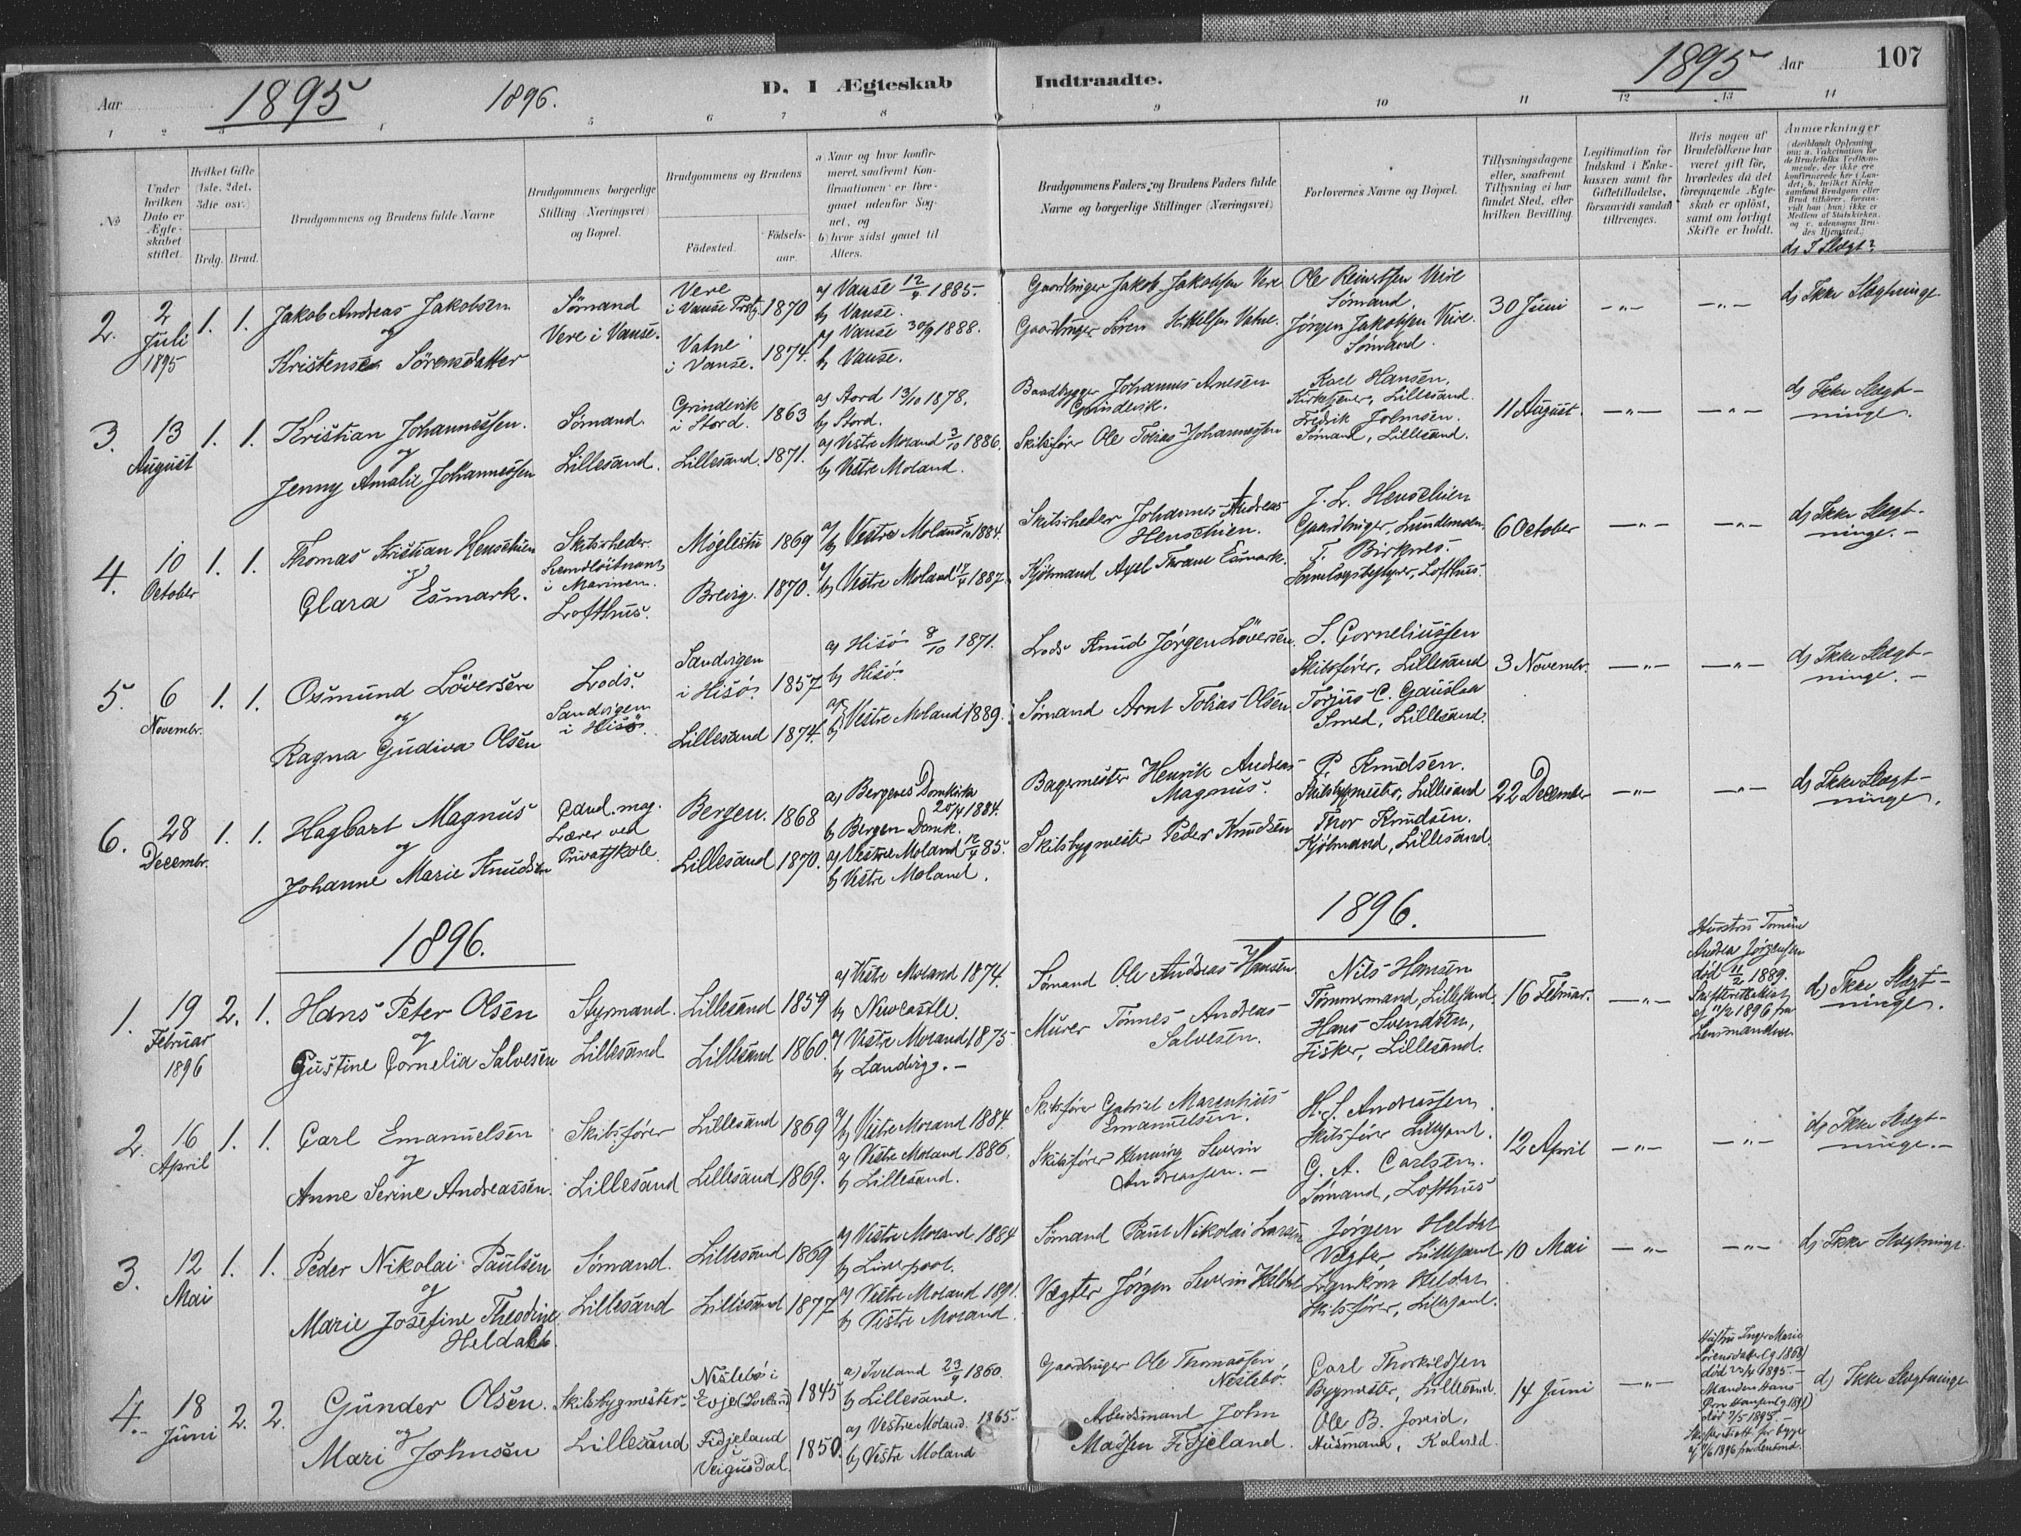 Aar 1895 1896. D. I Ægteskab Indtraadte. 1895 Aar 107
1 2 3 4 5 6 7 8 9 10 11 12 13 14
No
Under hvilken Dato er Ægteskabet stiftet.
Hvilket Gifte (1ste, 2det, 3die osv.)
Brdg. Brud.
Brudgommens og Brudens fulde Navne
Brudgommens borgerlige Stilling (Næringsvei) og Bopæl.
Brudgommens og Brudens
Fødested. Fødsels-aar.
a) Naar og hvor konfirmeret, saafremt Konfirmationen er foregaaet udenfor Sognet, og
b) hvor sidst gaaet til Alters.
Brudgommens Faders og Brudens Faders fulde Navne og borgerlige Stillinger (Næringsvei)
Forlovernes Navne og Bopæl.
Tillysningsdagene eller, saafremt Tillysning ei har fundet Sted, efter hvilken Bevilling.
Legitimation for Indskud i Enkekassen samt for Giftetilladelse, forsaavidt saadan tiltrænges.
Hvis nogen af Brudefolkene har været gift før, hvorledes da det foregaaende Ægteskab er opløst, samt om lovligt Skifte er holdt.
Anmærkninger
d) I Slægt?
2. 2 Juli 1895 1. 1.
Jakob Andreas Jakobsen
og
Kristense Sörensdatter
Sømand
Vere i Vanse.
Vere i Vanse Prstg 1870
Vatne i Vanse. 1874.
a) Vanse 12/4 1885.
b) Vanse.
a) Vanse 30/9 1888.
b) Vanse.
Gaardbruger Jakob Jakobsen Vere
Gaardbruger Søren Vatne.
Ole Reinertsen Vere
Sømand.
Jørgen Jakobsen Vere.
Sømand.
30 Juni
d) Ikke Slægtninge
3. 13 August 1. 1.
Kristian Johannessen.
og
Jenny Amalie Johannessen
Sømand.
Lillesand.
Grindevik i Stord. 1863
Lillesand. 1871.
a) Stord 13/10 1878.
b) Stord.
a) Vestre Moland 3/10 1886.
b) Vestre Moland.
Baadbygger Johannes Anesen
Grindevik.
Skibsfører Ole Tobias Johannessen
Karl Hansen,
Kirketjener, Lillesand.
Fredrik Johnsen.
Sømand, Lillesand.
11 August.
d) Ikke Slægt-
ninge.
4. 10 October 1. 1.
Thomas Kristian Henschien
og
Clara Esmark.
Skibsrheder
i Marinen.
Lofthus.
Møglestu 1869
Brevig. 1870.
a) b) Vestre Moland 5/10 1884.
a) b) Vestre Moland 17/4 1887.
Skibsrheder Johannes Andreas
Henschien.
Kjøbmand Axel Thrane Esmark.
J. L. Henschien
Gaardbruger, Lundemoen.
T. Birknes.
Lofthus.
6 October
d) Ikke Slægt-
ninge.
5. 6 Novembr. 1. 1.
Osmund Löversen
og
Ragna Gudiva Olsen
Lods.
Sandvigen
i Hisö
Sandvigen
i Hisø. 1857
Lillesand 1874.
a) Hisø 8/10 1871.
b) Hisø
a) b) Vestre Moland 1889.
Lods Knud Jørgen Löversen.
Sømand Arnt Tobias Olsen
S. Corneliussen
Skibsfører, Lillesand
Torjus C. Gauslaa
Smed, Lillesand.
3 Novembr.
d) Ikke Slægt-
ninge.
6. 28 Decembr. 1. 1.
Hagbart Magnus
og
Johanne Marie Knudsen
Cand. mag.
Lærer ved
Privatskole.
Bergen. 1868
Lillesand 1870.
a) Bergens Domkirke
20/4 1884.
b) Bergen Domk.
a) Vestre Moland 12/4 85.
b) Vestre Moland.
Bagermester Henrik Andreas
Magnus.
Skibsbygmester Peder Knudsen
P. Knudsen.
Skibsbygmester, Lillesand
Thor Knudsen.
Kjøbmand, Lillesand
22 December
d) Ikke Slægt-
ninge.
1896. 1896.
1. 19 Februar 1896 2. 1.
Hans Peter Olsen
og
Gustine Cornelia Salvesen
Styrmand.
Lillesand
Lillesand 1859
Lillesand 1860.
a) Vestre Moland 1874.
b) Newcastle.
a) Vestre Moland 1875
b) Landvig.
Sømand Ole Andreas Hansen
Murer Tönnes Andreas
Salvesen.
Nils Hansen
Tømmermand, Lillesand
Hans Svendsen,
Fisker, Lillesand.
16 Februar.
Hustru Tomine
Andrea Jørgensen
død 11/2 1889.
Skifteretsattest
af 11/2 1896 fra
Lensmanden.
d) Ikke Slægt-
ninge.
2. 16 April 1. 1.
Carl Emanuelsen
og
Anne Serine Andreassen.
Skibsfører
Lillesand
Lillesand 1869
Lillesand 1869.
a) b) Vestre Moland 1884.
a) Vestre Moland 1886.
b) Lillesand.
Skibsfører Gabriel Marenhius
Emanuelsen.
Skibsfører Henning Severin
Andreassen.
H. S. Andreassen
Skibsfører Lillesand.
G. A. Carlsen.
Sømand, Lofthus
12 April
d) Ikke Slægt-
ninge.
3. 12 Mai 1. 1.
Peder Nikolai Paulsen
og
Marie Josefine Theodine
Heldal
Sømand.
Lillesand
Lillesand 1869
Lillesand 1877
a) Vestre Moland 1884
b) Liverpool.
a) Vestre Moland 1891.
b) Vestre Moland.
Sømand Paul Nikolai Larsen
Vægter Jørgen Severin Heldal
Jørgen Heldal
Vægter, Lillesand
Heldal
Skibsfører, Lillesand.
10 Mai
d) Ikke Slægtninge.
4. 18 Juni 2. 2.
Gunder Olsen.
og
Mari Johnsen
Skibsbygmester
Lillesand
Neslebø i
Evje (Iveland) 1845
Fidjeland
Veigusdal. 1850.
a) Iveland 23/9 1860.
b) Lillesand.
a) Vestre Moland. 1865.
b) Vestre Moland
Gaardbruger Ole Thomassen,
Neslebø.
Arbeidsmand John
Madsen Fidjeland.
Carl Thorkildsen
Bygmester, Lillesand.
Ole B.
Husmand,
14 Juni
Hustru Inger Marie
Sørensdatter g 1868)
død 22/4 1895.
Manden Hans
død 7/5 1895.
af 9/6 1896 fra Lensmd.
d) Ikke Slægtninge